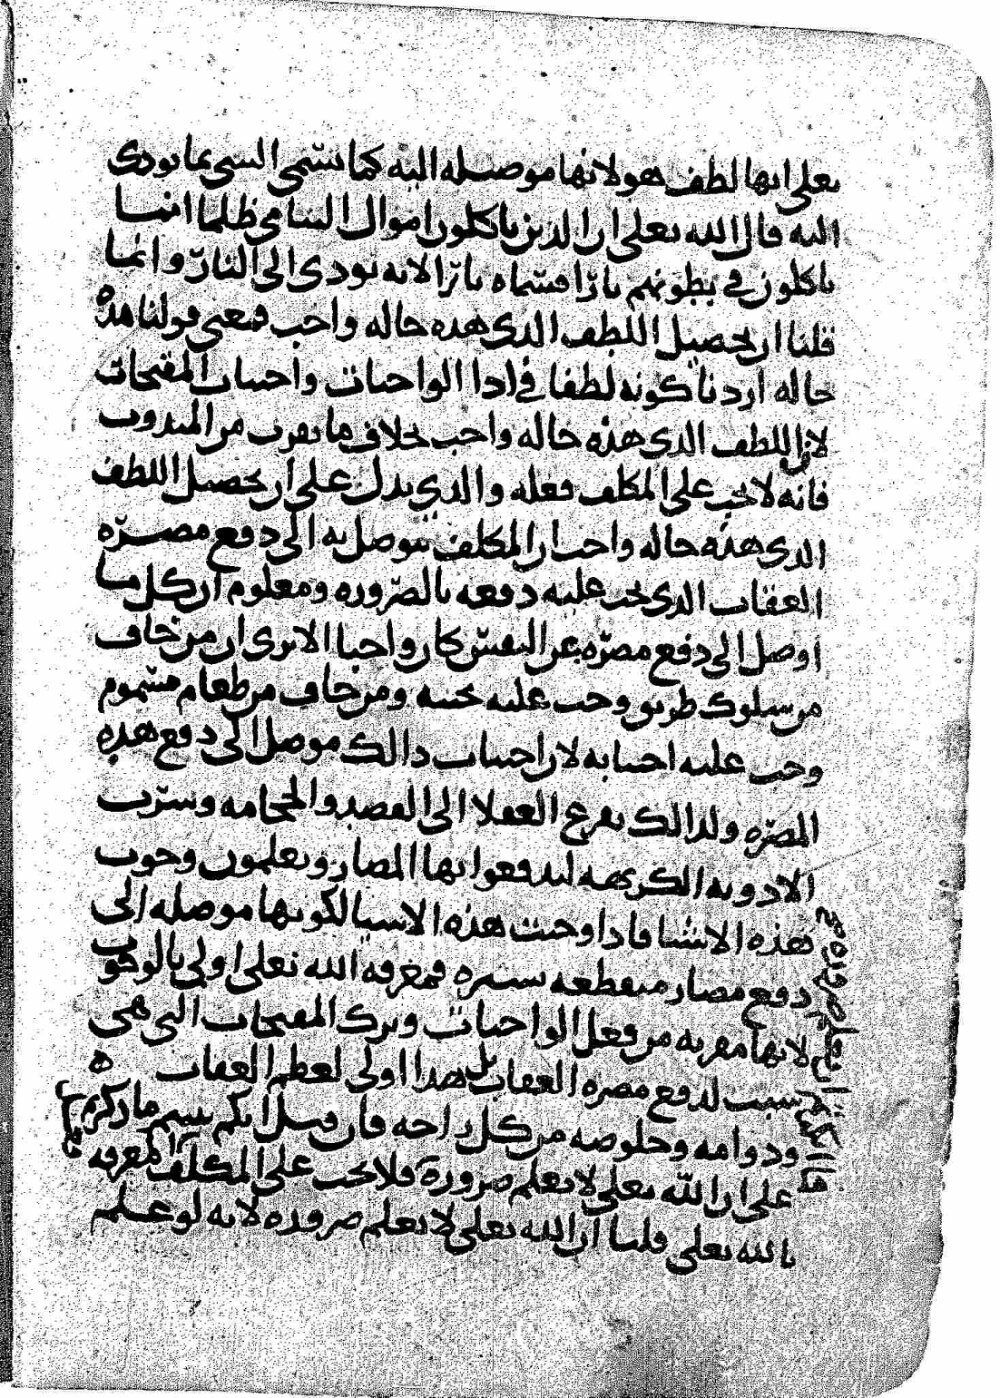 تعلى انها لطف هو لانها موصله اليه كما يسمى الشي بما يودى
اليه قال الله تعلى ان الذين ياكلون اموال اليتامى ظلما انما
ياكلون في بطونهم نارًا فسماه نارًا لانه يودى الى النار وانما
قلنا ان تحصيل اللطف الذى هذه حاله واجب فمعنى قولنا هذه
حاله اردنا كونه لطفا في ادا الواجبات واجتناب المقبحات
لان اللطف الذي هذه حاله واجب بخلاف ما يقرب من المندوب
فانه لا يجب على المكلف فعله والذي يدل على ان تحصيل اللطف
الذى هذه حاله واجب ان المكلف يتوصل به الى دفع مضرّه
العقاب الذى يجب عليه دفعه بالضروره ومعلوم ان كل ما
اوصل الى دفع مضرّه عن النفس كان واجبا الا ترى ان من خاف
من سلوك طريق وجب عليه تجنبه ومن خاف من طعام مسموم
وجب عليه اجتنابه لان اجتناب ذالك موصل الى دفع هذه
المضرّه ولذالك يفزع العقلا الى الفصد والحجامه وشرب
الادويه الكريهه ليدفعوا بها المضار ويعلمون وجوب
هذه الاشيا فاذا وجبت هذه الاشيا لكونها موصله الى
دفع مضار منقطعه يسيره فمعرفه الله تعلى اولى بالوجوب
لانها مقربه من فعل الواجبات وترك المقبحات التي هى
سبب لدفع مضره العقاب بل هذا اولى لعظم العقاب
ودوامه وخلوصه من كل راحه فان قيل انكم بنيتم ما ذكرتم
على ان الله تعلى لا يعلم ضرورة فلا يجب على المكلف المعرفه
بالله تعلى قلنا ان الله تعلى لا يعلم ضروره لانه لو علم